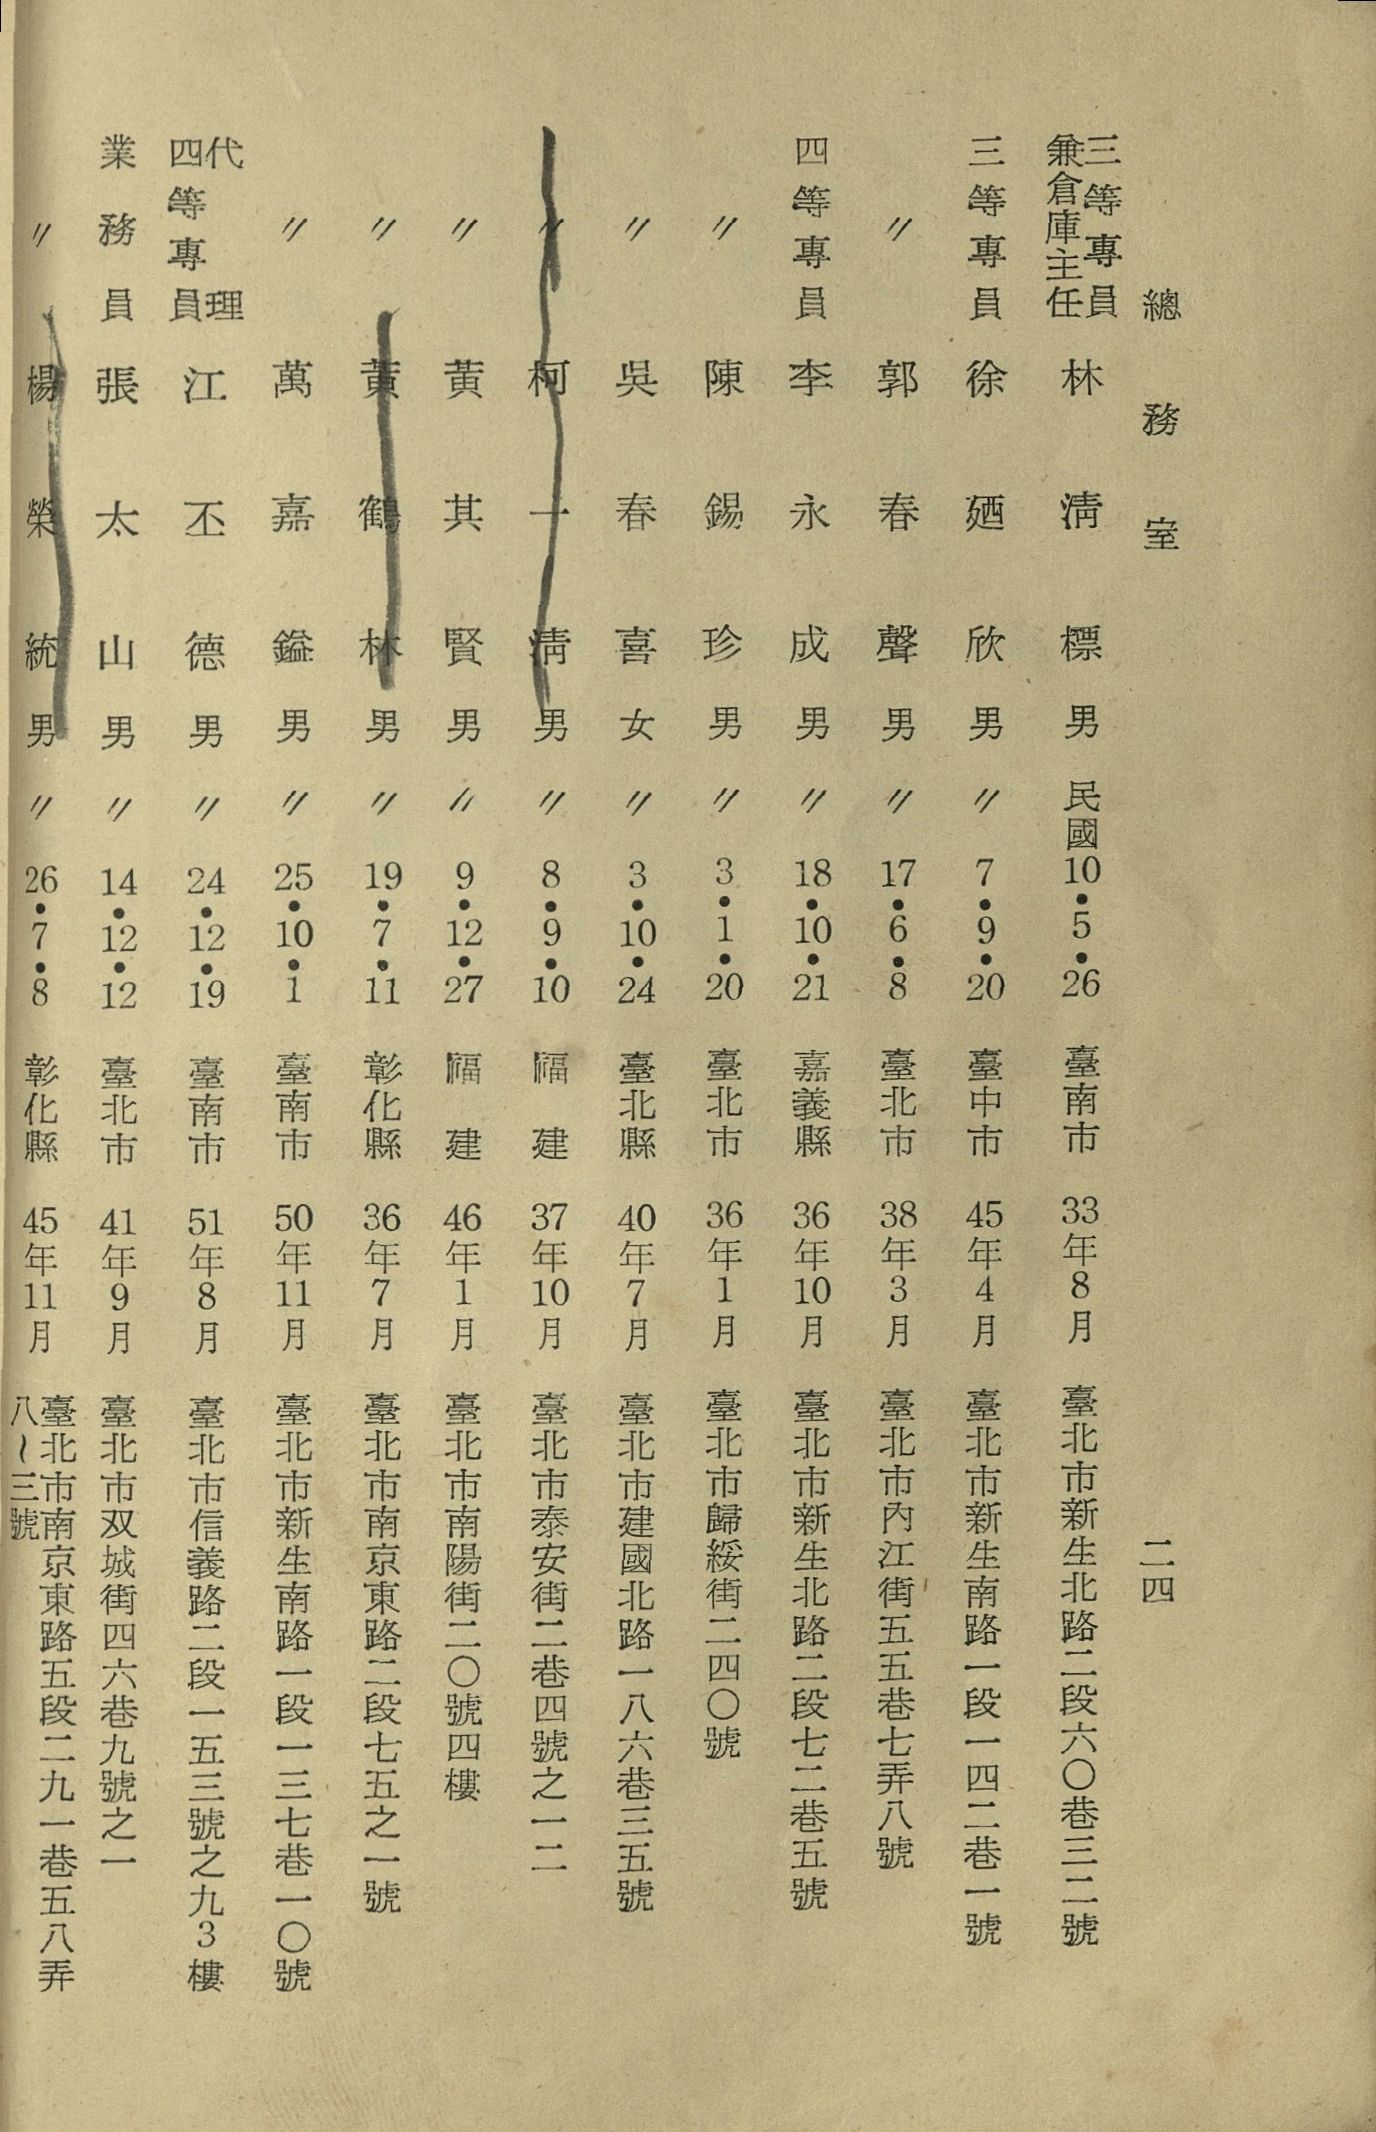 總務室 二四
三等專員兼倉庫主任 林淸標 男 民國10•5•26 臺南市 33年8月 臺北市新生北路二段六〇巷三二號
三等專員 徐廼欣 男 〃 7•9•20 臺中市 45年4月 臺北市新生南路一段一四二巷一號
〃 郭春聲 男 〃 17•6•8 臺北市 38年3月 臺北市內江街五五巷七弄八號
四等專員 李永成 男 〃 18•10•21 嘉義縣 36年10月 臺北市新生北路二段七二巷五號
〃 陳錫珍 男 〃 3•1•20 臺北市 36年1月 臺北市歸綏街二四〇號
〃 吳春喜 女 〃 3•10•24 臺北縣 40年7月 臺北市建國北路一八六巷三五號
〃 柯一淸 男 〃 8•9•10 福建 37年10月 臺北市泰安街二巷四號之一二
〃 黃其賢 男 〃 9•12•27 福建 46年1月 臺北市南陽街二〇號四樓
〃 黃鶴林 男 〃 19•7•11 彰化縣 36年7月 臺北市南京東路二段七五之一號
〃 萬嘉鎰 男 〃 25•10•1 臺南市 50年11月 臺北市新生南路一段一三七巷一〇號
代理四等專員 江丕德 男 〃 24•12•19 臺南市 51年8月 臺北市信義路二段一五三號之九3樓
業務員 張太山 男 〃 14•12•12 臺北市 41年9月 臺北市双城街四六巷九號之一
〃 楊榮統 男 〃 26•7•8 彰化縣 45年11月 臺北市南京東路五段二九一巷五八弄
八～三號